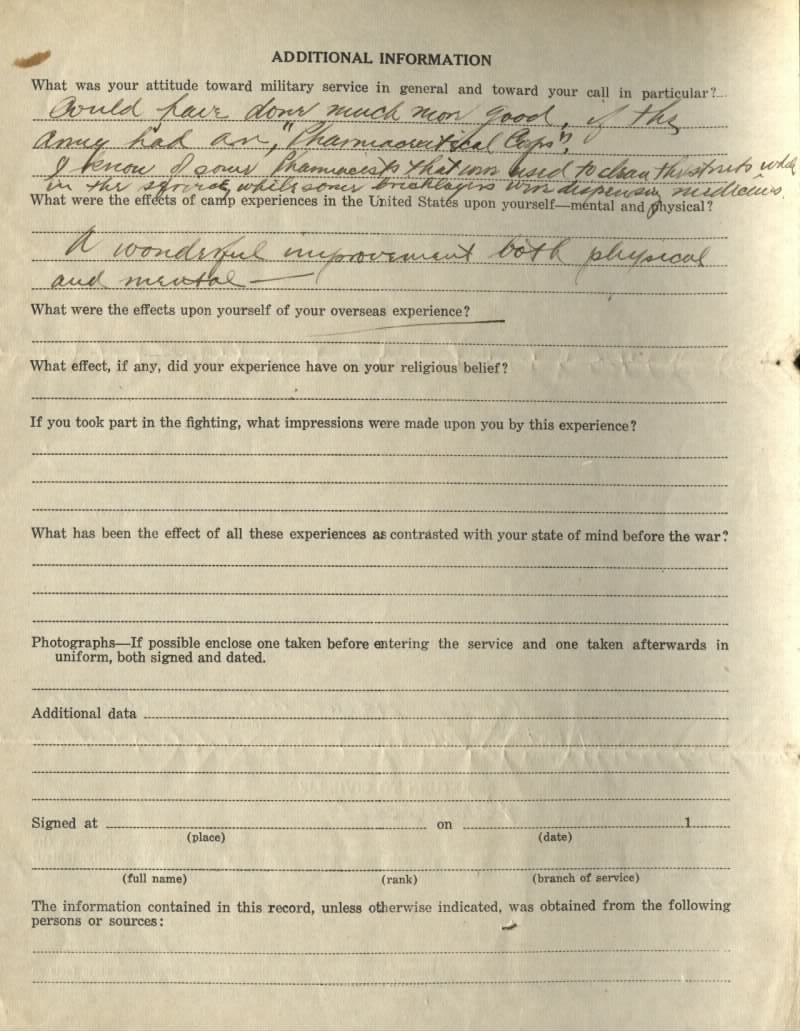 ADDITIONAL INFORMATION
What was your attitude toward military service in general and toward your call in particular?
Could have done much more good, if the
Army had an, "Pharmaceutical Corps",
I know of some Pharmacists that were used to clean the streets while
in the service, while some bricklayers were dispensin medicines.
What were the effects of camp experiences in the United States upon yourself—mental and physical?
A wonderful improvement both physical
and mental —
What were the effects upon yourself of your overseas experience?
What effect, if any, did your experience have on your religious belief?
If you took part in the fighting, what impressions were made upon you by this experience?
What has been the effect of all these experiences as contrasted with your state of mind before the war?
Photographs—If possible enclose one taken before entering the service and one taken afterwards in
uniform, both signed and dated.
Additional data
Signed at on 1
(place) (date)
(full name) (rank) (branch of service)
The information contained in this record, unless otherwise indicated, was obtained from the following
persons or sources: